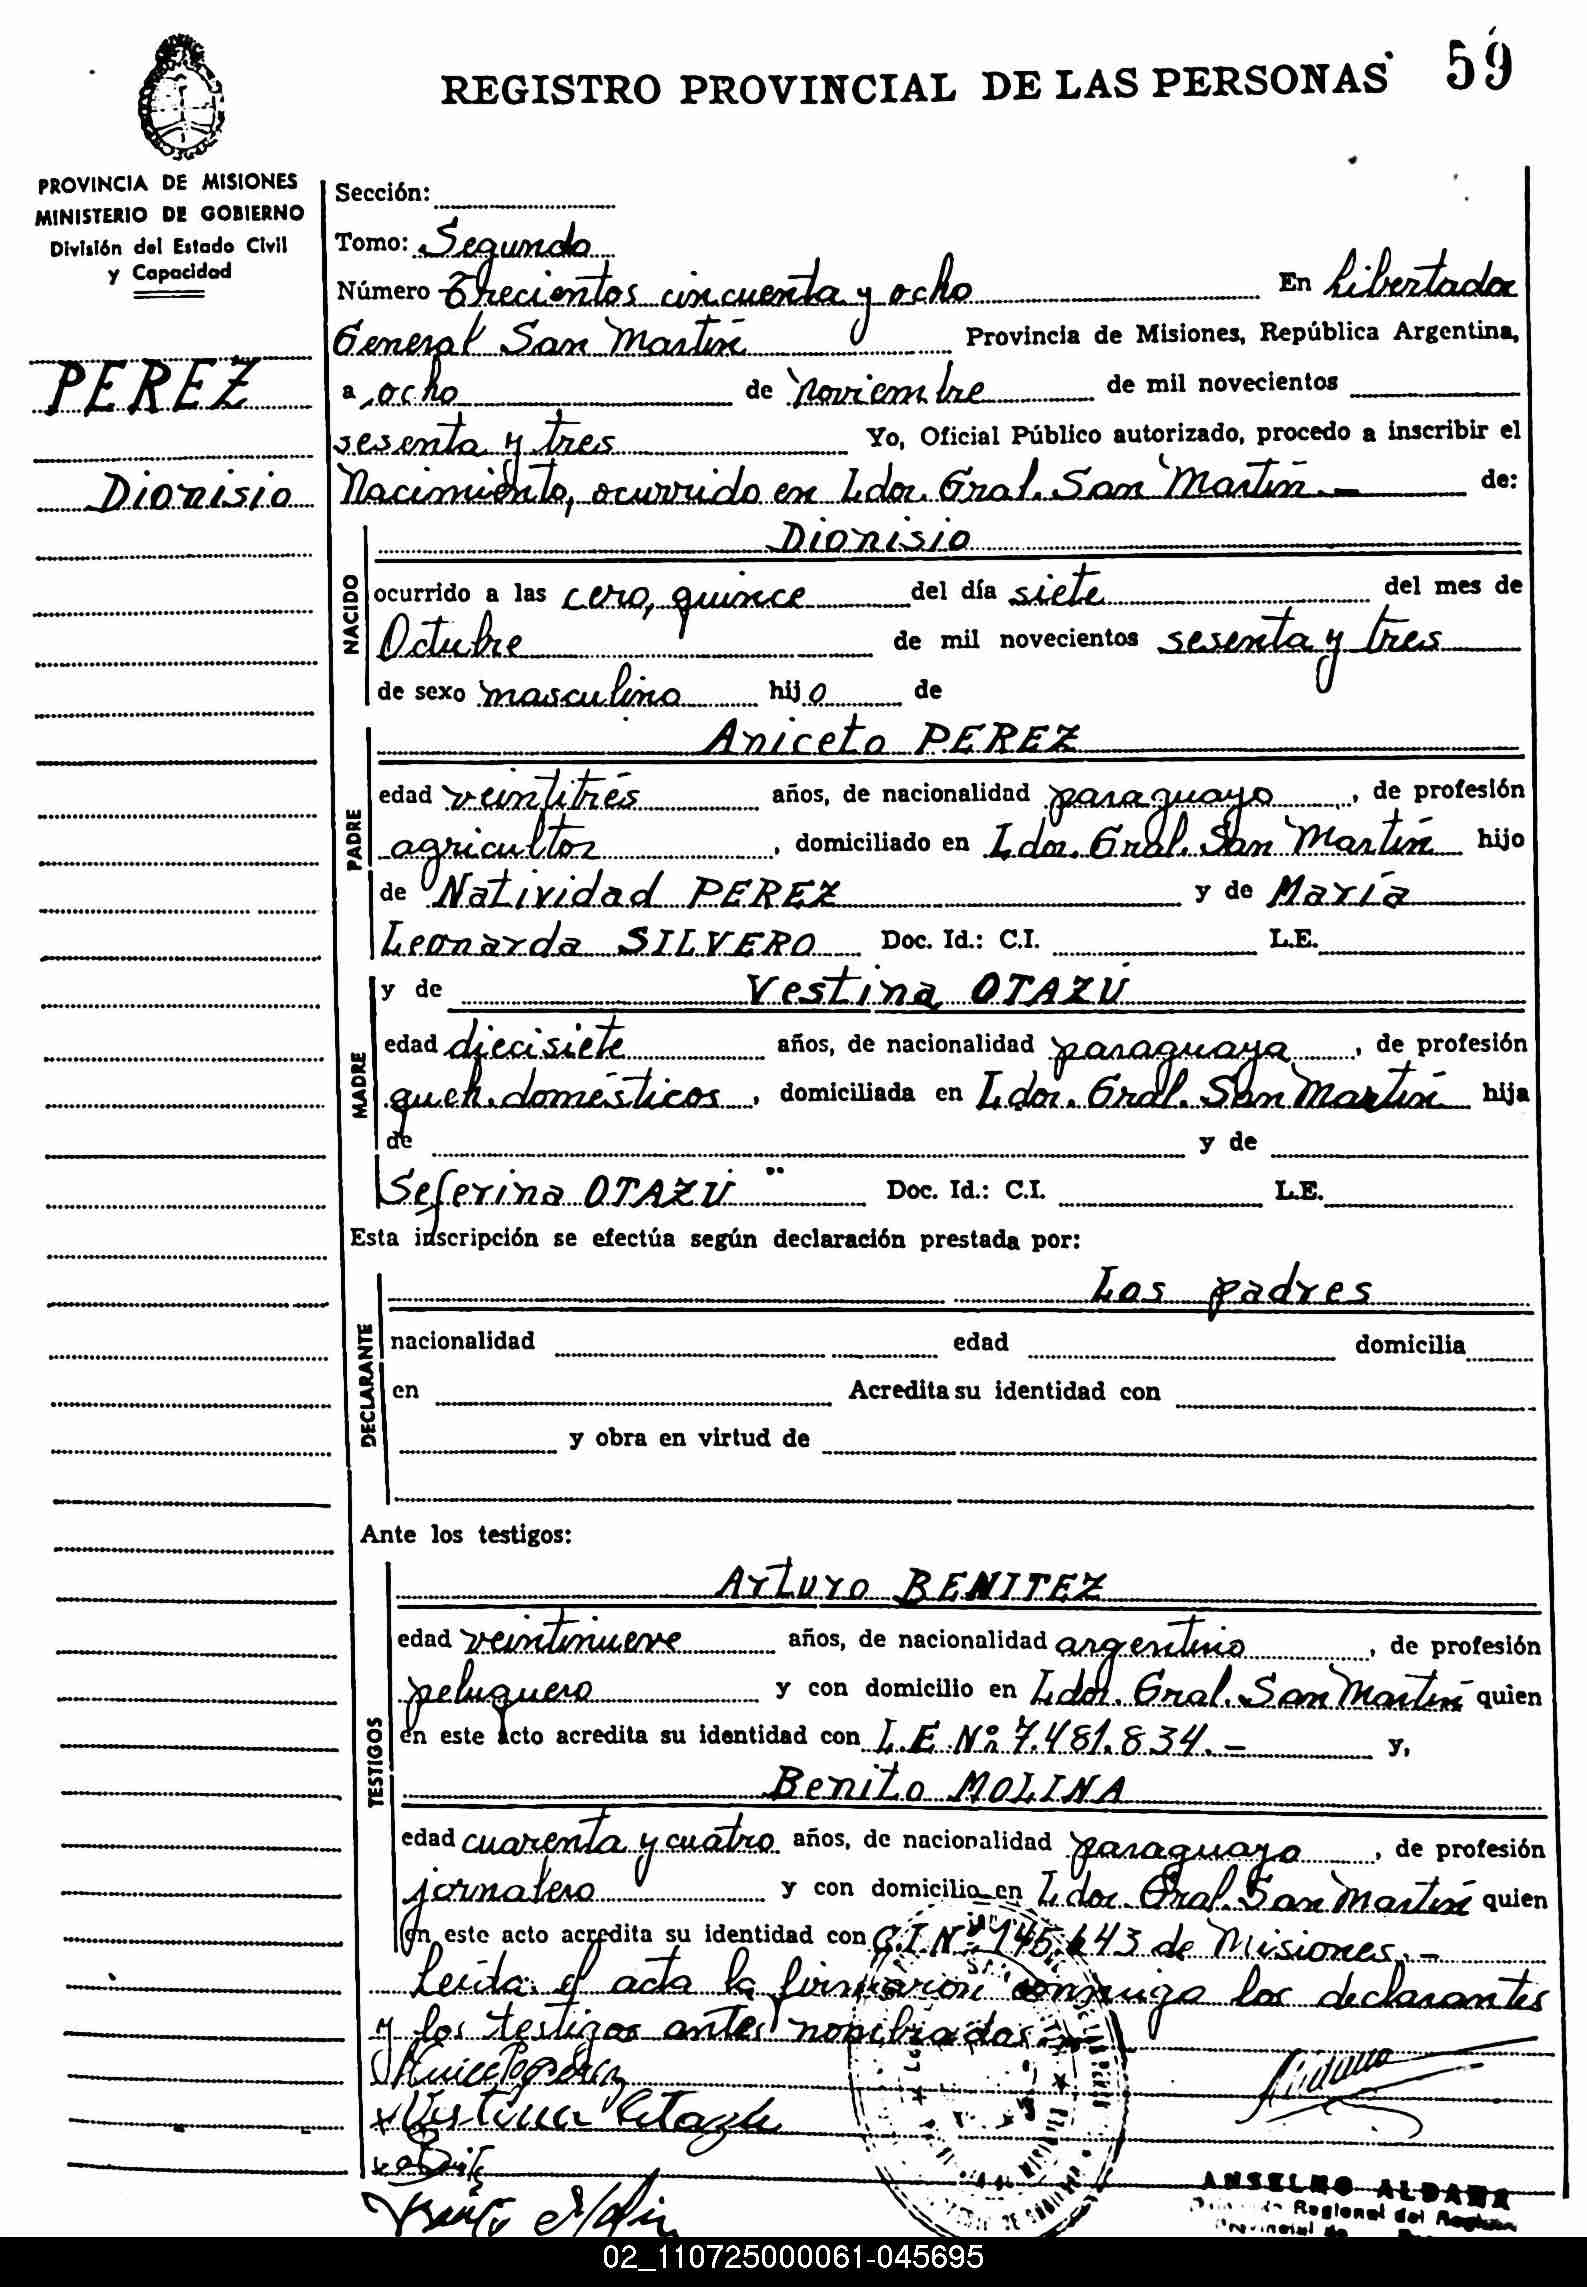 REGISTRO PROVINCIAL DE LAS PERSONAS 59
PROVINCIA DE MISIONES
MINISTERIO DE GOBIERNO
División del Estado Civil
y Capacidad
PEREZ
Dionisio
Sección:
Tomo: Segundo
Número Trecientos cincuenta y ocho En Libertador
General San Martín Provincia de Misiones, República Argentina,
a ocho de noviembre de mil novecientos
sesenta y tres Yo, Oficial Público autorizado, procedo a inscribir el
Nacimiento, ocurrido en Ldor. Gral. San Martín.- de:
NACIDO
Dionisio
ocurrido a las cero, quince del día siete del mes de
Octubre de mil novecientos sesenta y tres
de sexo masculino hijo de
PADRE
Aniceto PEREZ
edad veintitrés años, de nacionalidad paraguayo, de profesión
agricultor, domiciliado en Ldor. Gral. San Martín hijo
de Natividad PEREZ y de María
Leonarda SILVERO Doc. Id.: C.I. L.E.
MADRE
y de Vestina OTAZÚ
edad diecisiete años, de nacionalidad paraguaya, de profesión
queh. domésticos, domiciliada en Ldor. Gral. San Martín hija
de y de
Seferina OTAZÚ Doc. Id.: C.I. L.E.
Esta inscripción se efectúa según declaración prestada por:
DECLARANTE
Los padres
nacionalidad edad domicilia
en Acredita su identidad con
y obra en virtud de
Ante los testigos:
TESTIGOS
Arturo BENITEZ
edad veintinueve años, de nacionalidad argentino, de profesión
peluquero y con domicilio en Ldor. Gral. San Martín quien
en este acto acredita su identidad con L.E. Nº 7.481.834.- y,
Benito MOLINA
edad cuarenta y cuatro años, de nacionalidad paraguayo, de profesión
jornalero y con domicilio en Ldor. Gral. San Martín quien
en este acto acredita su identidad con C.I. Nº 145.643 de Misiones.-
Leída el acta la firmaron conmigo los declarantes
y los testigos antes nombrados.
Vestina Otazu
ANSELMO ALDANA
Regional del
02_110725000061-045695